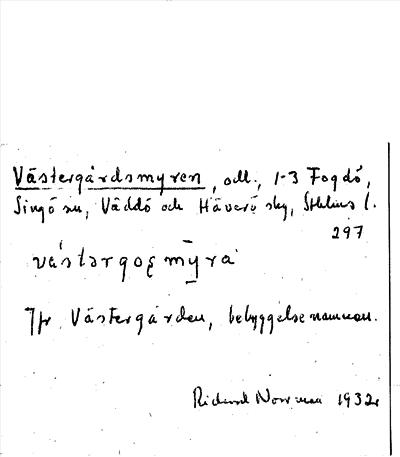 Västergårdsmyren, odl., 1-3 Fogdö,
Singö sn, Väddö och Häverö skg, Sthlms l.
297
västərgoʂmȳra
Jfr Västergården, bebyggelsenamnen.
Rickard Norrman 1932